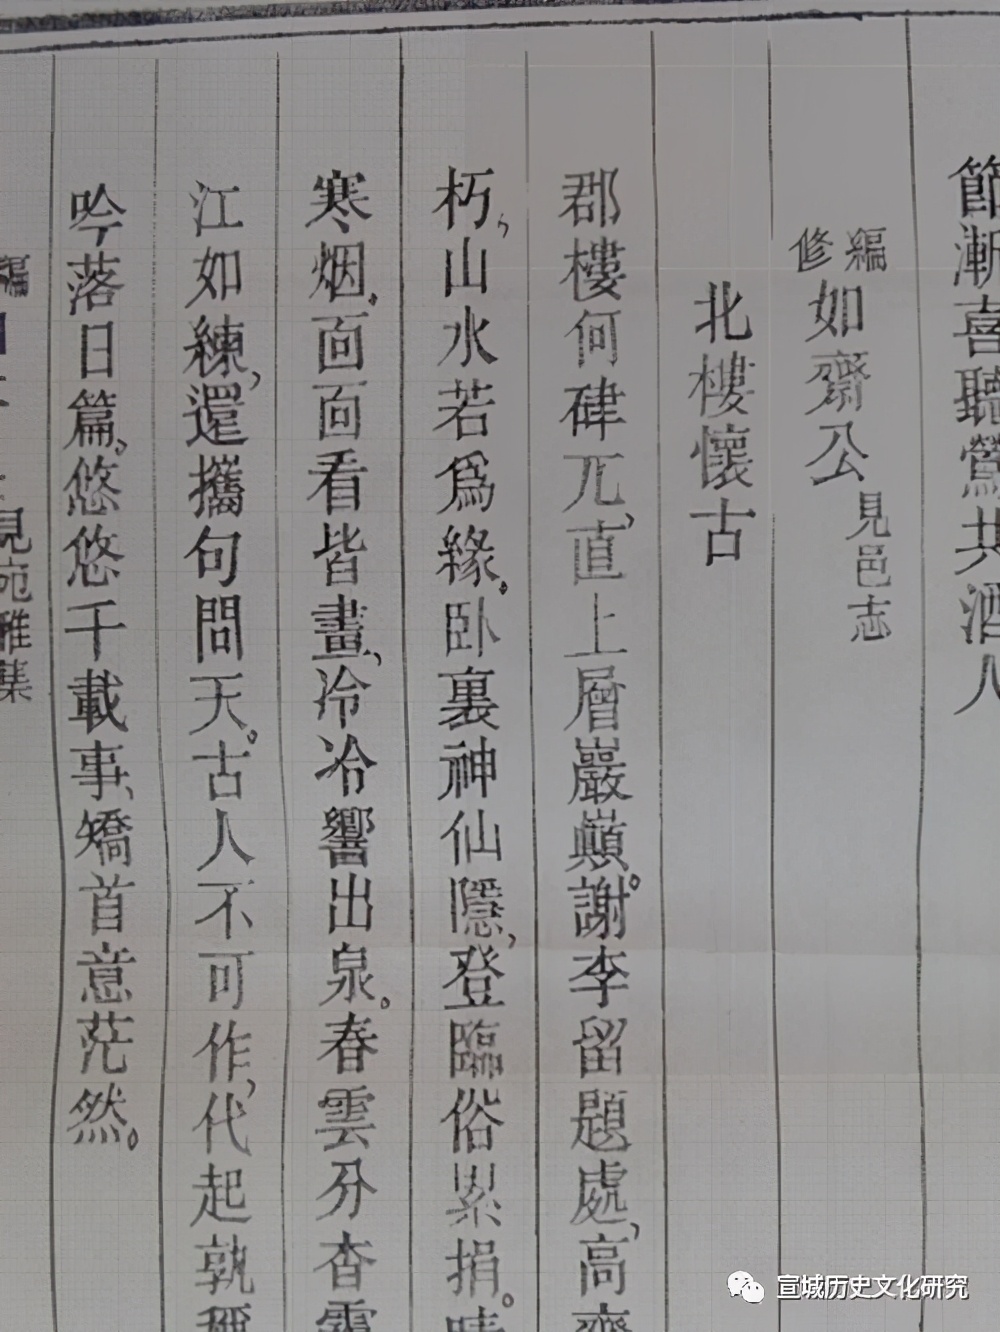 節漸喜聽鶯共酒人
編修 如齋公 見邑志
北樓懷古
郡樓何硉兀，直上層巖巔。謝李留題處，高齋
朽，山水若爲緣。卧裏神仙隱，登臨俗累捐。晴
寒烟。面面看皆畫，冷冷響出泉。春雲分杳靄
江如練，還攜句問天。古人不可作，代起孰
吟落日篇。悠悠千載事，矯首意茫然。
編 見宛雅集
宣城历史文化研究